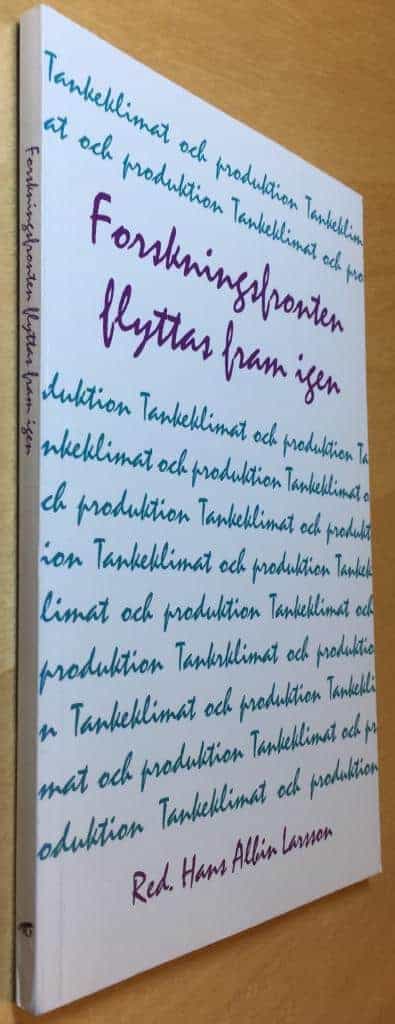 Forskningsfronten flyttas fram igen
Tankeklimat och produktion Tankeklim
at och produktion Tankeklimat och pro
Forskningsfronten
flyttas fram igen
duktion Tankeklimat och produktion Ta
nkeklimat och produktion Tankeklimat o
ch produktion Tankeklimat och produkt
ion Tankeklimat och produktion Tankek
limat och produktion Tankeklimat och
produktion Tankrklimat och produktio
n Tankeklimat och produktion Tankekli
mat och produktion Tankeklimat och pr
oduktion Tankeklimat och produktion
Red. Hans Albin Larsson